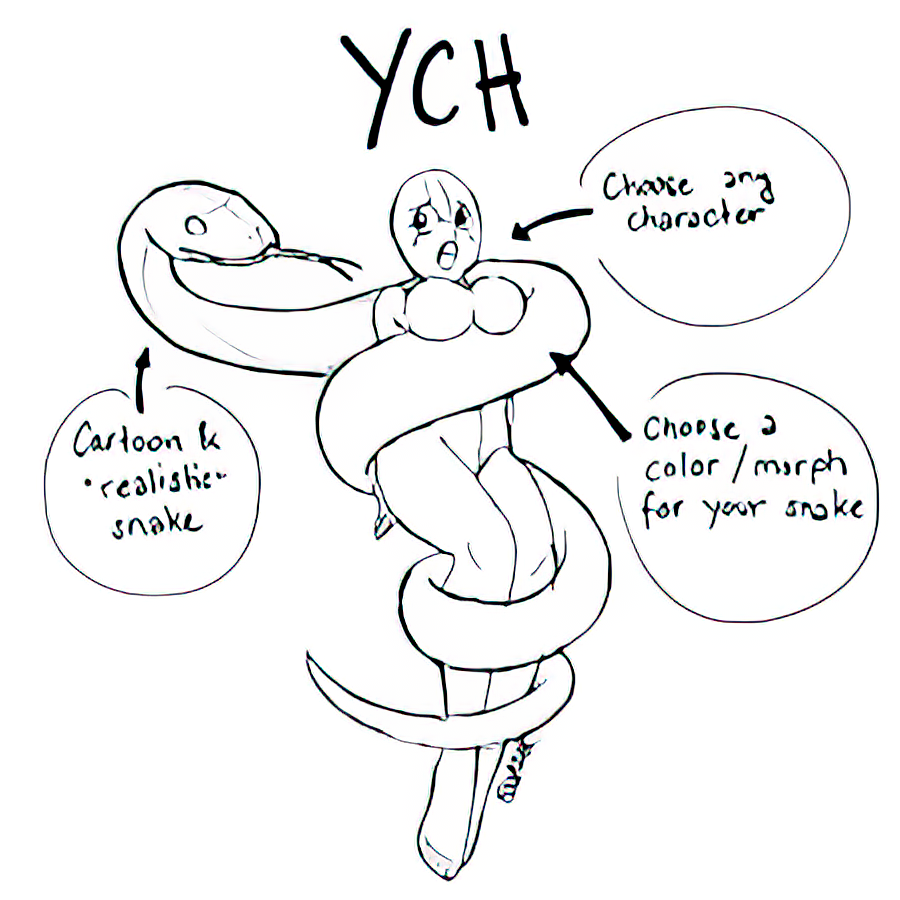 YCH
Choose any
character
Cartoon &
"realistic"
snake
Choose a
color/morph
for your snake